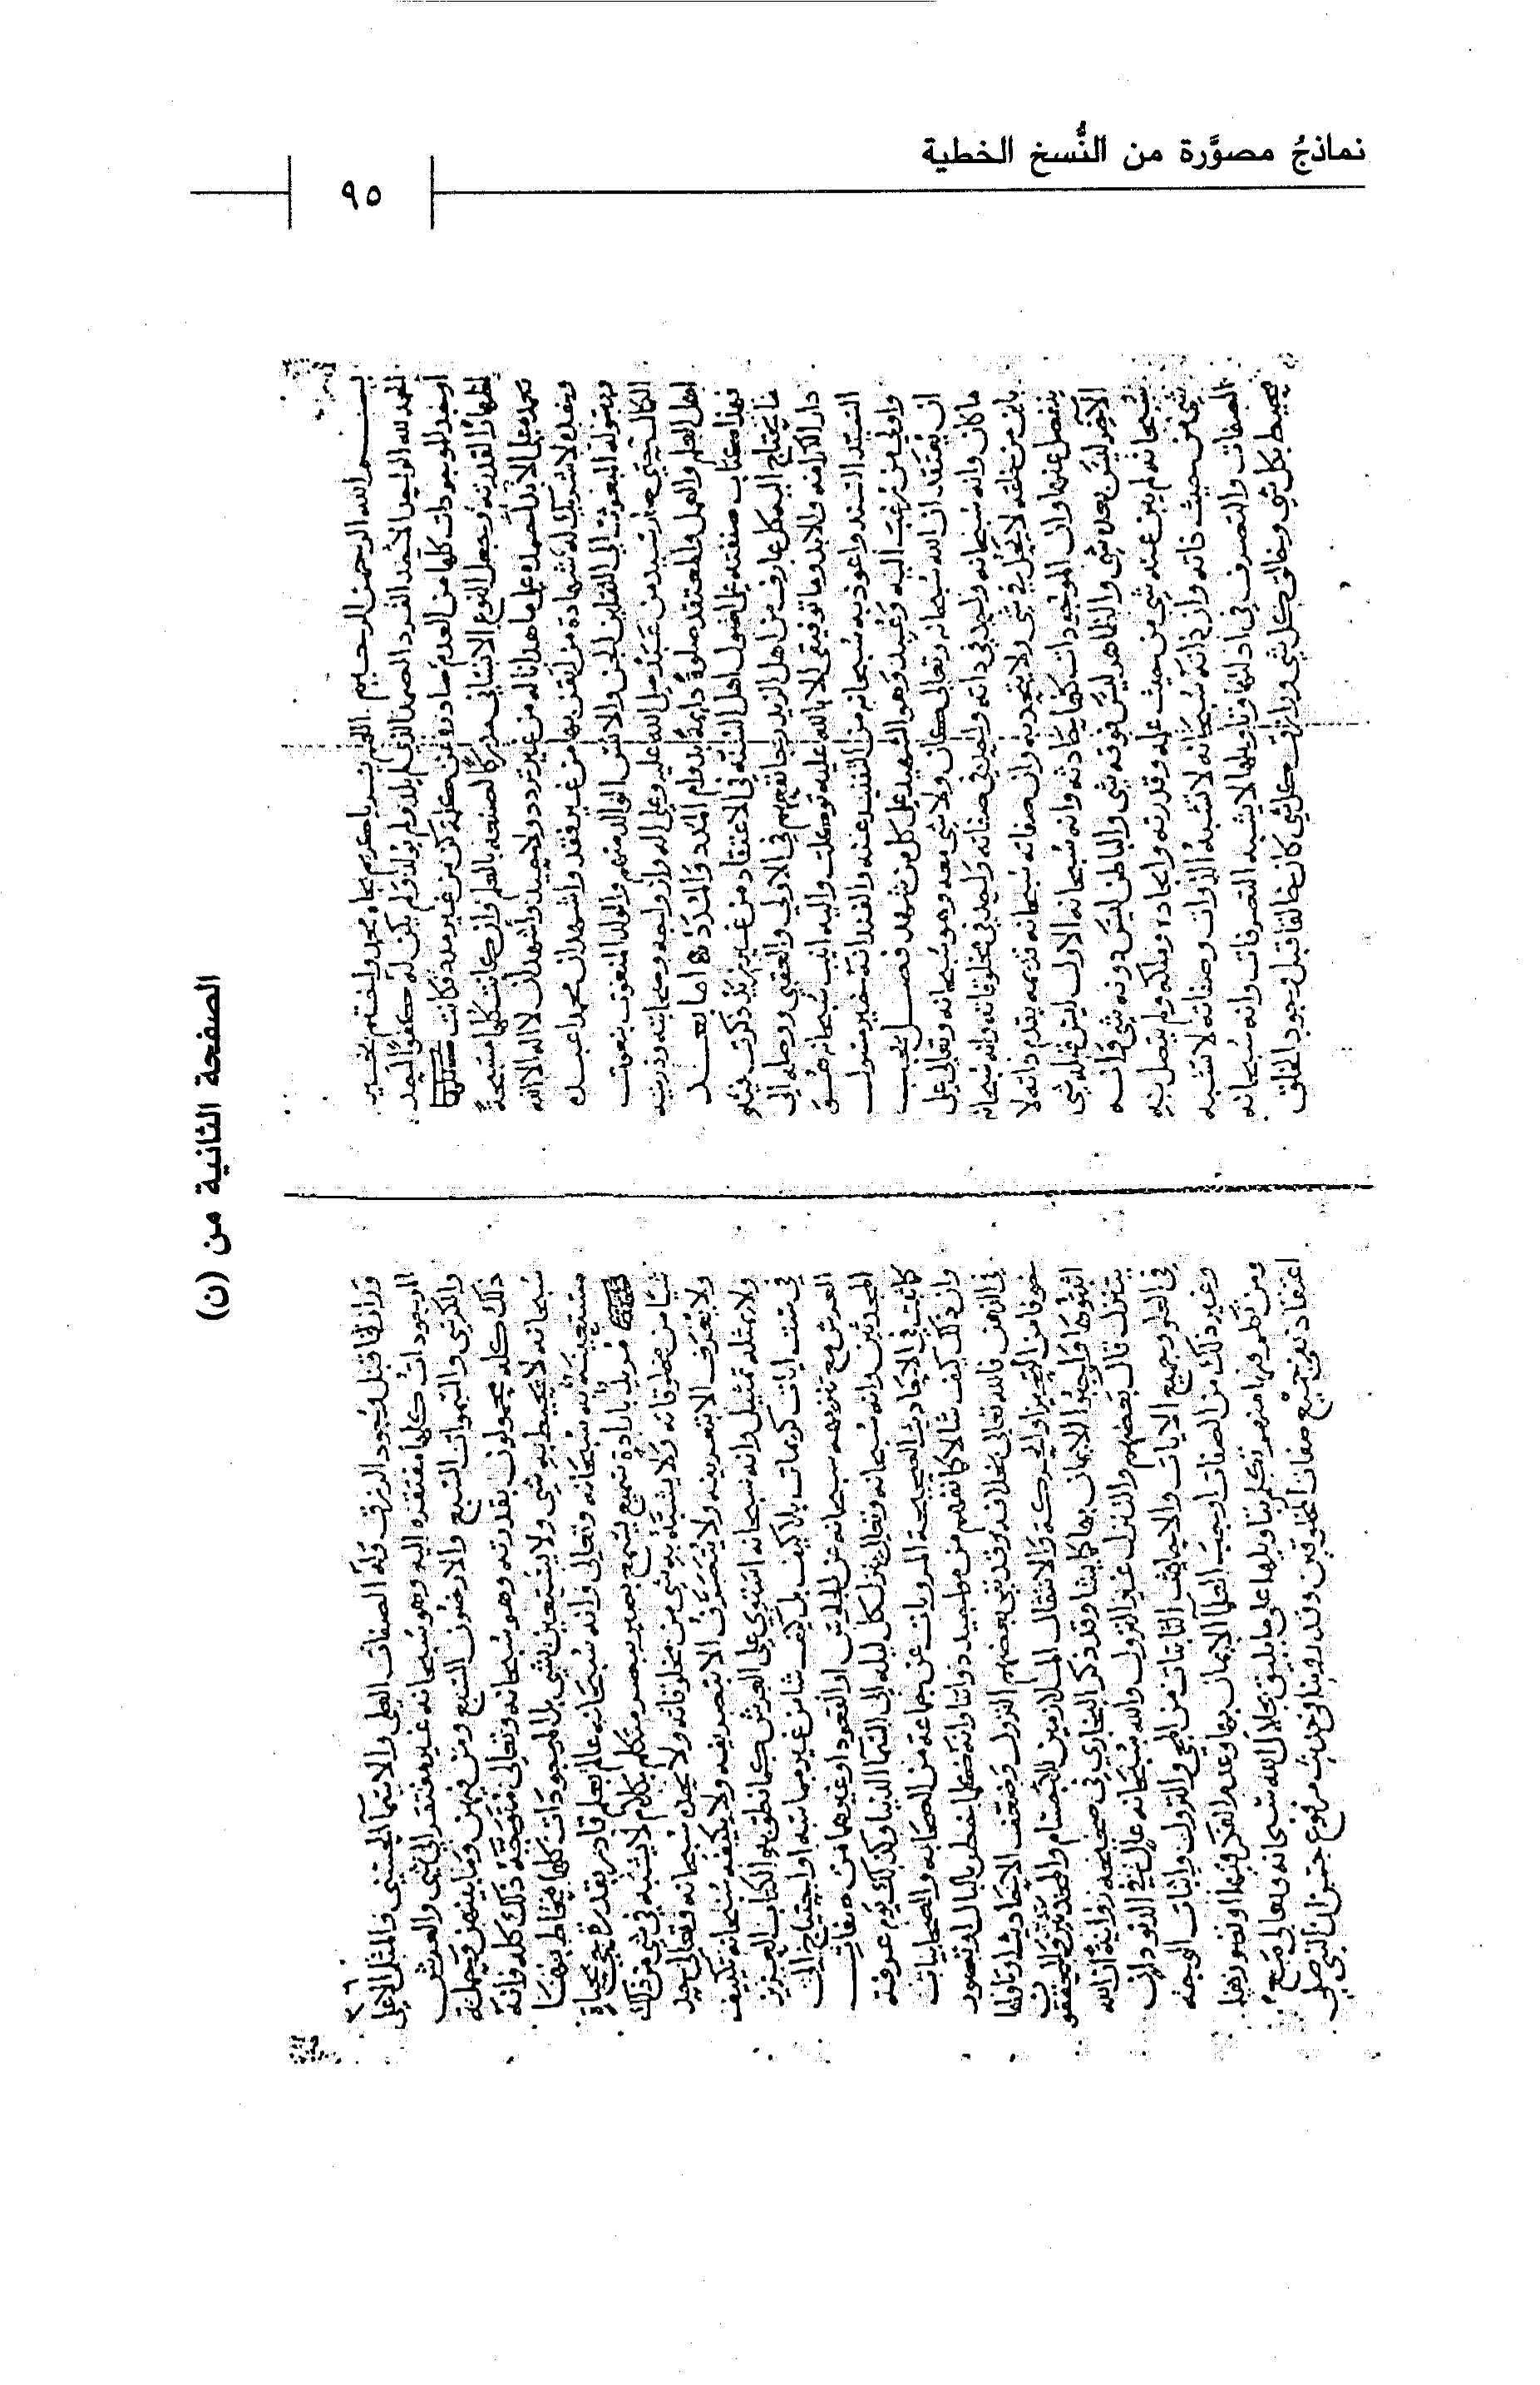 نماذجُ مصوَّرة من النُّسخ الخطية
٩٥
بسم الله الرحمن الرحيم اللهم يسر يا كريم بجاه محمد واختم بخير
الحمد لله الواحد الأحد الفرد الصمد الذي لم يلد ولم يولد ولم يكن له كفوا احد
اوجد الموجودات كلها من العدم صادرة عن كلمة كن من غير مدد فكانت كلها
اظهارا لقدرته وجعل النوع الانساني مدركا لصنعه بالعلم وان كانت كلها مسبحة
بحمده على ما هدانا له من غير تردد ولا واشهد ان لا اله الا الله
وحده لا شريك له شهادة من بها من غير فقد واشهد ان محمدا عبده
ورسوله المبعوث الى الثقلين الجن والانس الوالد منهم والولد المنعوت بنعوت
الكمال حتى صار سيد من عبد صلى الله عليه وعلى اله وازواجه وصحابته وذريته
اهل العلم والعمل والمعتقد صلوة دايمة بدوام المُدد والمَدد اما بعد
فهذا كتاب صنفته على اصول اهل السنة في الاعتقاد من غير ذكرت فيه
ما يحتاج اليه كل عارف من اهل رجا نفعهم في الاولى والعقبى ووصله الى
دار الكرامة والابد وما توفيقي الا بالله عليه توكلت واليه انيب سبحانه هو
السيد السند واعوذ به سبحانه من
واولى من رغب اليه وعبد وهو الشهيد على كل من شهد فصل يجب
ان يعتقد ان الله سبحانه وتعالى كان ولا شي معه وهو سبحانه وتعالى على
ما كان وانه سبحانه واحد في ذاته واحد في صفاته واحد في مخلوقاته وانه سبحانه
باين من خلقه لا يحل في شي ولا يتحد به وان صفاته سبحانه قديمه بقدم ذاته لا
ينفصل عنها وان الموجودات كلها حادثه وانه سبحانه الاول ليس قبله شي
الاخر ليس بعده شي والظاهر ليس فوقه شي والباطن ليس دونه شي وانه
سبحانه لم يبن عنه شي من حيث علمه وقدرته وايجاده وملكه ولم يتصل به
شي من حيث ذاته وان ذاته سبحانه لا تشبه الذوات وصفاته لا تشبه
الصفات والتصرف في ادلتها وتاويلها لا يشبه التصرفات وانه سبحانه
محيط بكل شي وخالق كل شي ورازق كل شي كان خالقا قبل وجود الخلق
ورازقا قبل وجود الرزق وله الصفات العلى والاسما الحسنى والمثل الاعلى
الموجودات كلها مفتقره اليه وهو سبحانه غير مفتقر الى شي والعرش
والكرسي والسموات السبع والارضون السبع ومن فيهن وما بينهن وحملة
ذلك كله محمولون بقدرته وهو سبحانه وتعالى ذلك كله وانه
سبحانه لا يحيط به شي ولا يستعين بشي بل الموجودات كلها محاط بها
مستعينة به سبحانه وتعالى وانه سبحانه عالم بعلم قادر بقدرة حي بحياة
مريد بارادة سميع بسمع بصير ببصر متكلم بكلام لا يشبه في شي من ذلك
شيا من مخلوقاته ولا يشبه به شي من مخلوقاته ولا يحل سبحانه وتعالى
ولا يعرف الا بتعريفه ولا يتصرف الا بتصريفه ولا يكيفه سبحانه تكييف
ولا يمثله تمثيل وانه سبحانه استوى على العرش كما نطق به الكتاب العزيز
في ست ايات كريمات بلا كيف بل كيف شا من غير مماسة او احتياج الى
العرش مع تنزيهه سبحانه عن الجلوس او القعود او غيرهما من صفات
المحدثين وانه سبحانه وتعالى ينزل كل ليله الى السما الدنيا وكذلك يوم عرفة
كما ثبت في الاحاديث الصحيحة المرويات عن جماعة من الصحابه والصحابيات
وان ذلك كيف شا لا كما نفهم من ذواتنا وانه كلما خطر بالبال او تصور
في الذهن فالله تعالى بخلافه وقد نفى بعضهم النزول وضعف الاحاديث او تاولها
خوفا من التحيز او الحركة والانتقال الملازمين للاجسام والمحدثين والمحققون
اثبتوها واوجبوا الايمان بها كما يشا وقد ذكر البخاري في صحيحه رواية ان الله
يتنزل قال بعضهم والتنزل غير النزول والله سبحانه عال في الدنو دان
في العلو وجميع الايات والاحاديث الثابتات من المجي والنزول واثبات الوجه
وغير ذلك من الصفات اوجب العلما الايمان بها وعدم الفكر فيها او تصورها
ومن تكلم منهم تكلم بتاويلها على ما يليق بجلال الله سبحانه وتعالى مع
اعتقاد نفي جميع صفات المخلوقين وقد روينا في حديث مرفوع حسن ان النبي صلى
الصفحة الثانية من (ن)